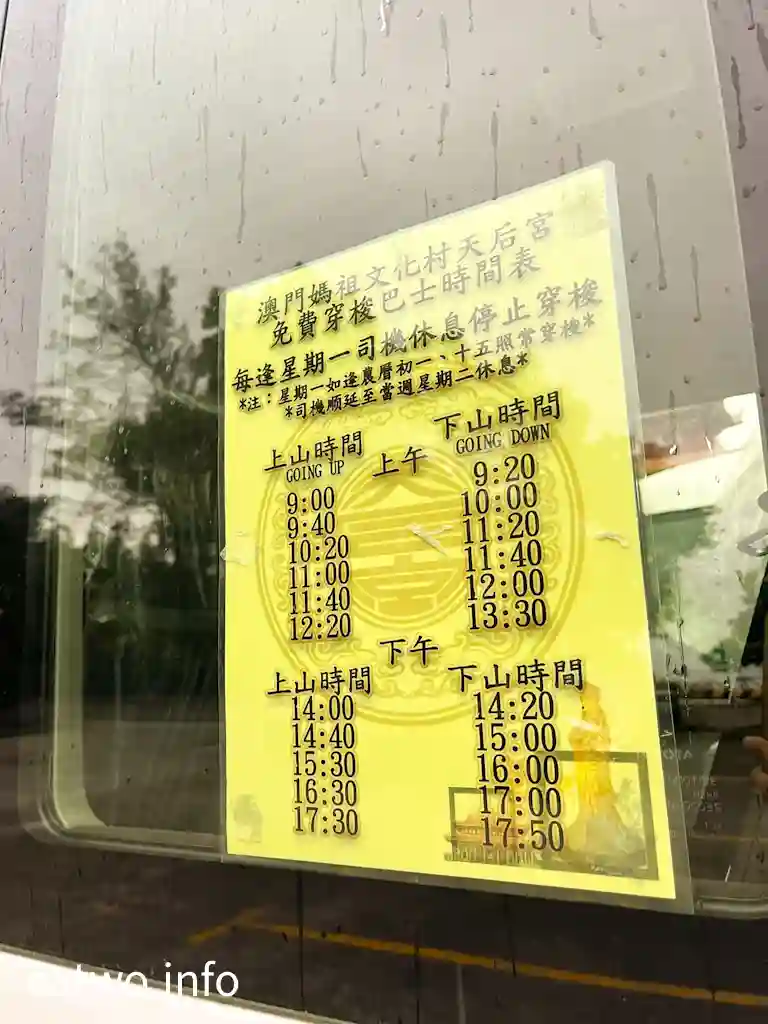 澳門媽祖文化村天后宮
免費穿梭巴士時間表
每逢星期一司機休息停止穿梭
*注：星期一如逢農曆初一、十五照常穿梭*
*司機顺延至當週星期二休息*
上山時間 下山時間
GOING UP 上午 GOING DOWN
9:00 9:20
9:40 10:00
10:20 11:20
11:00 11:40
11:40 12:00
12:20 13:30
下午
上山時間 下山時間
14:00 14:20
14:40 15:00
15:30 16:00
16:30 17:00
17:30 17:50
two.info